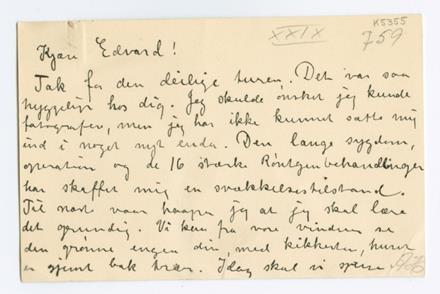 K5355
XXIX
759
Kjære Edvard!
Tak for den deilige turen. Det var saa
hyggeligt hos dig. Jeg skulde ønsket jeg kunde
fotografere, men jeg har ikke kunnet sætte mig
ind i noget nyt enda. Den lange sygdom,
operation og de 16 stærke Røntgenbehandlinger
har skaffet mig en svækkelsestilstand.
Til næste vaar haaper jeg at jeg skal lære
det ordentlig. Vi kan fra vore vinduer se
den grønne engen din, med kikkerten, huset
er gjemt bak trær. Idag skal vi spise